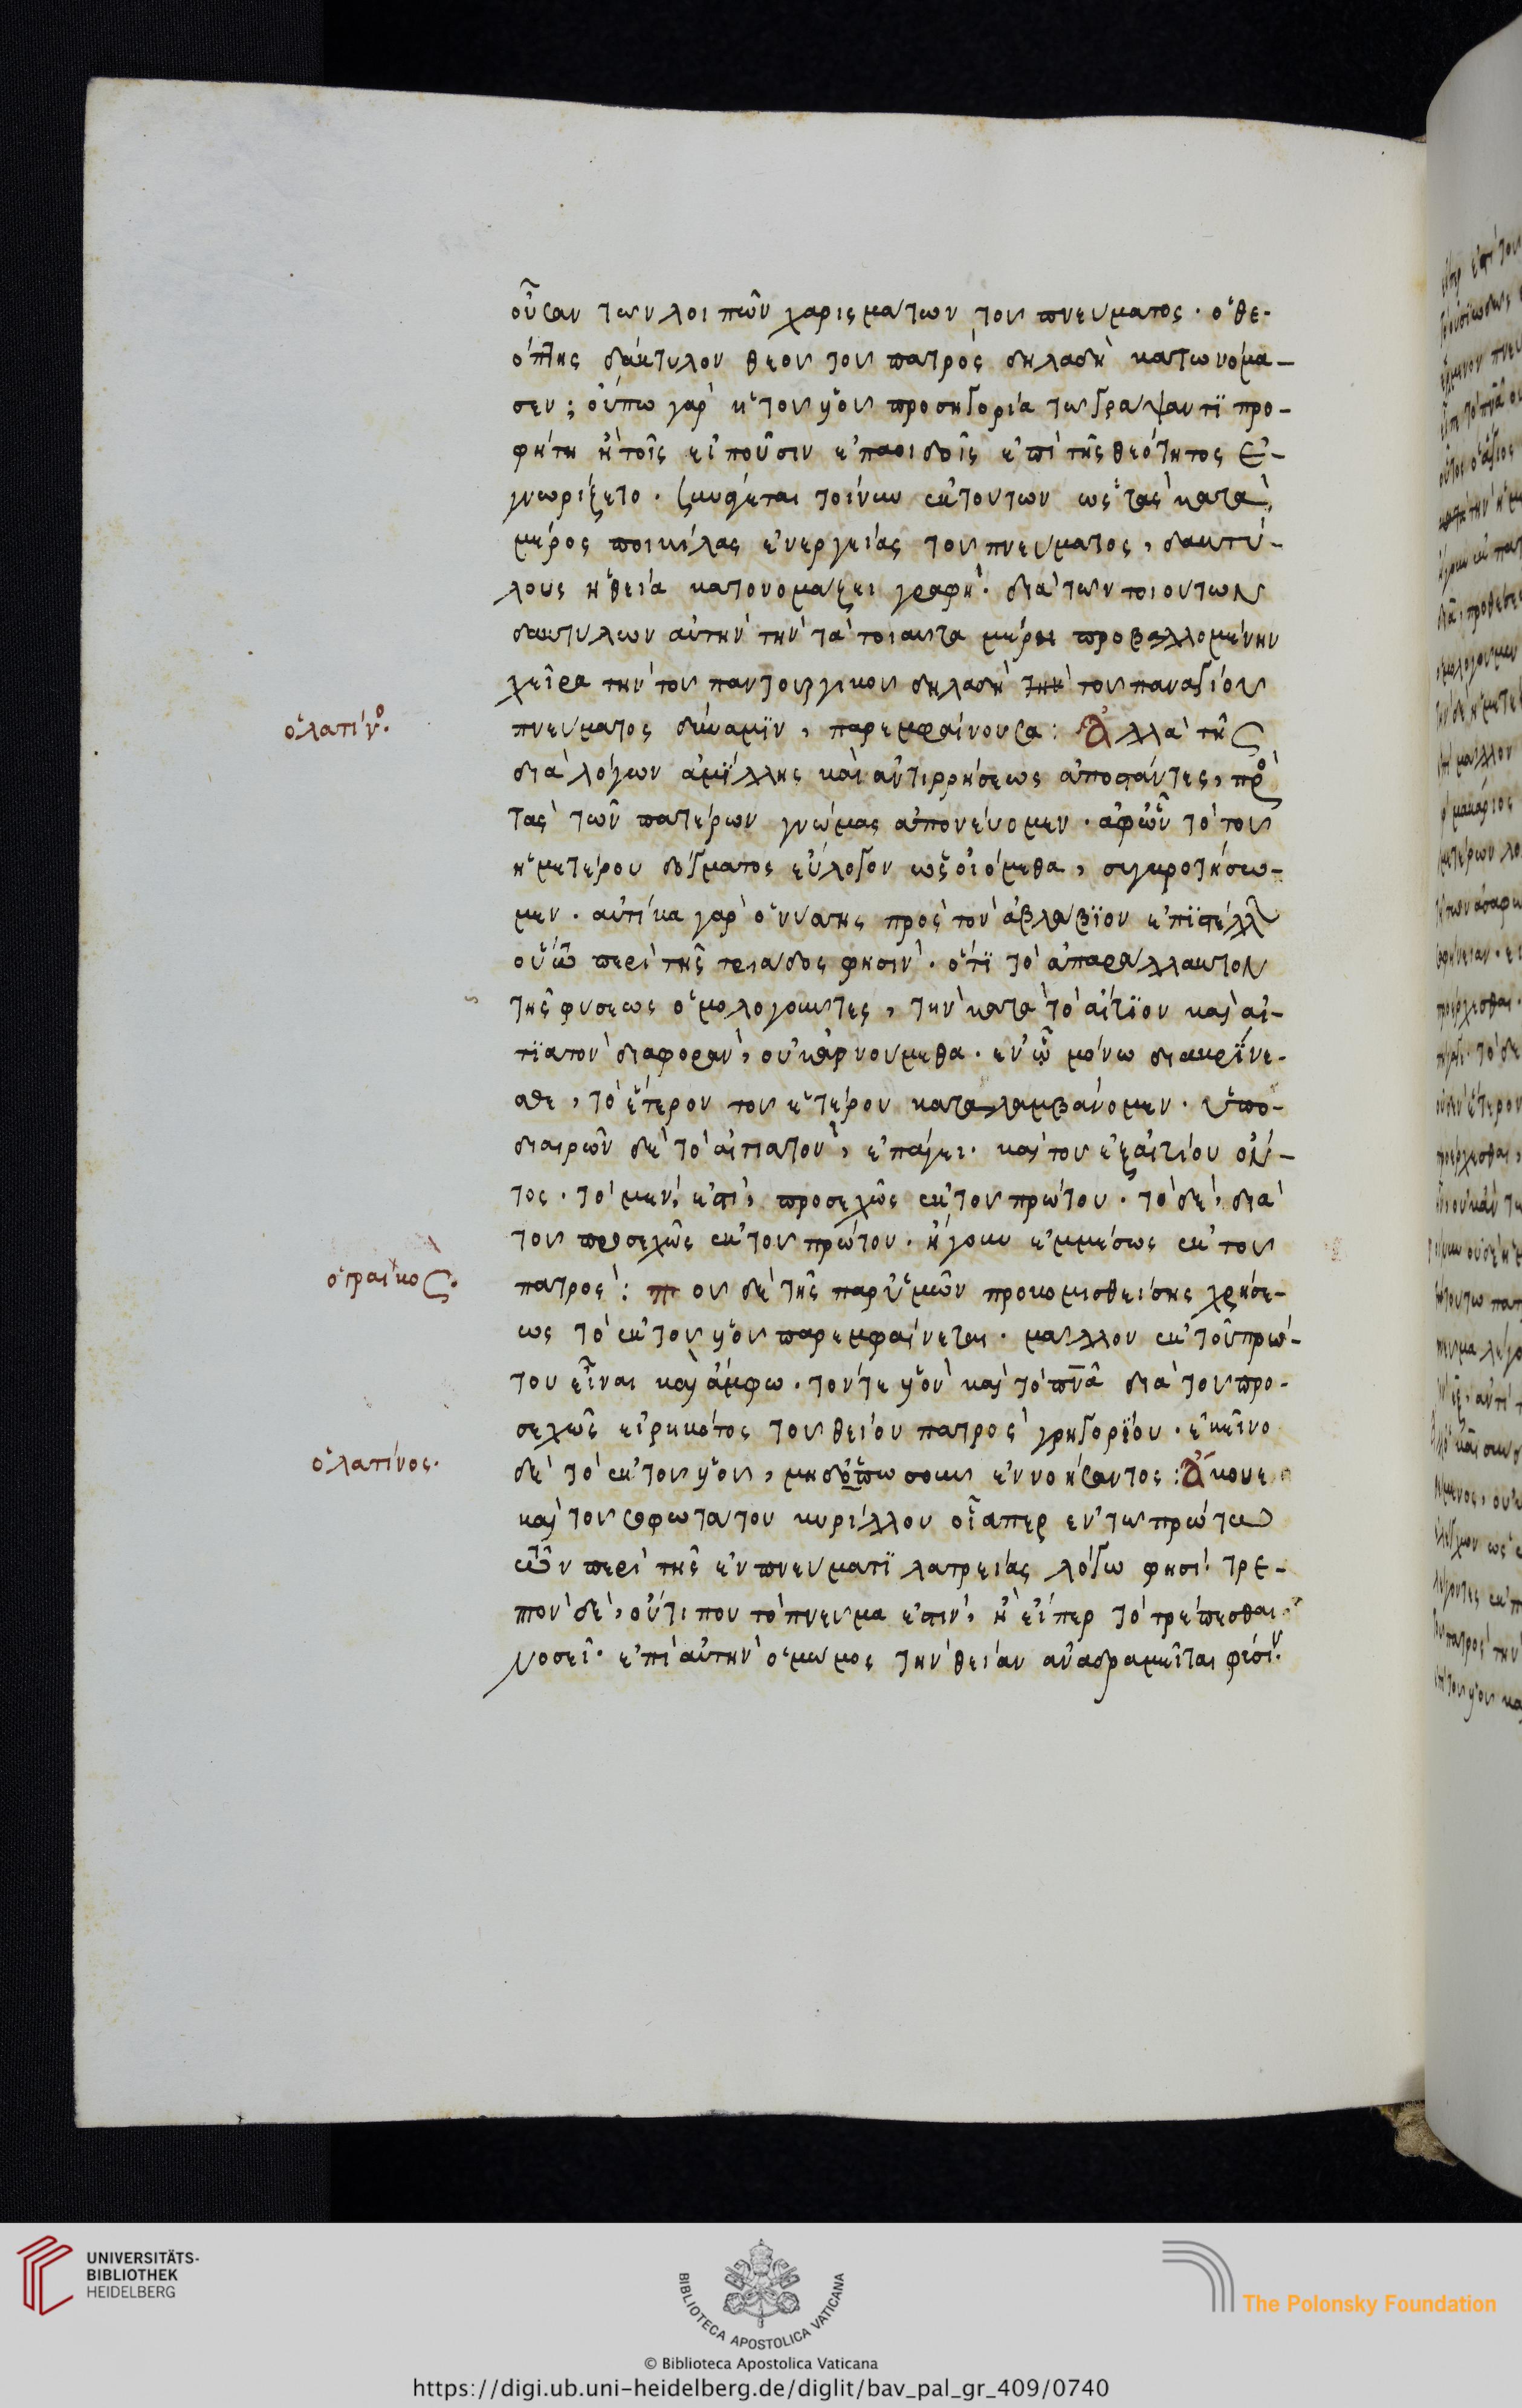 οὖσαν των λοιπῶν χαρισμάτων του πνεύματος· ὁ θε-
όπτης δάκτυλον θεοῦ του πατρὸς δηλαδὴ κατωνόμα-
σεν· οὔπω γὰρ ἡ του υἱοῦ προσηγορία τω γράψαντι προ-
φήτη ἢ τοῖς εἰποῦσιν ἐπαοιδοῖς ἐπὶ τῆς θεότητος ἐ-
γνωρίζετο· συνάγεται τοίνυν ἐκ τούτων ὡς τὰς κατὰ
μέρος ποικίλας ἐνεργείας του πνεύματος, δακτύ-
λους ἡ θεία κατονομάζει γραφὴ· διὰ των τοιούτων
δακτύλων αὐτὴν τὴν τὰ τοιαῦτα μέρη προβαλλομένην
χεῖρα τὴν του παντουργικοῦ δηλαδὴ τὴν του παναγίου
πνεύματος δύναμϊν, παρεμφαίνουσα: Ἀλλὰ τῆς
διὰ λόγων ἁμίλλης καὶ ἀντιρρήσεως ἀποστάντες, πρὸς
τὰς τῶν πατέρων γνώμας ἀπονεύομεν· ἀφ ὧν τὸ του
ἡμετέρου δόγματος εὔλογον ὡς οἰόμεθα, συγκροτήσω-
μεν· αὐτίκα γὰρ ὁ νύσης πρὸς τὸν ἀβλάβϊον ἐπϊστέλλ
οὕτω περὶ τῆς τριάδος φησὶν· ὅτϊ τὸ ἀπαράλλακτον
τῆς φύσεως ὁμολογοῦντες, τὴν κατὰ τὸ αἴτϊον καὶ αἰ-
τϊατὸν διαφορὰν, οὐκ ἀρνούμεθα· ἐν ὧ μόνω διακρίνε-
σθε, τὸ ἕτερον του ἑτέρου καταλαμβάνομεν· ὑπο-
διαιρῶν δὲ τὸ αἰτιατὸν, ἐπάγει· καὶ του ἐξ αἰτίου ὄν-
τος· τὸ μὲν, ἐστὶ, προσεχῶς ἐκ του πρώτου· τὸ δὲ, διὰ
του προσεχῶς ἐκ του πρώτου· ἤγουν ἐμμέσως ἐκ του
πατρὸς: που δὲ τῆς παρ ὑμῶν προκομισθείσης χρήσε-
ως τὸ ἐκ του υἱοῦ παρεμφαίνεται· μᾶλλον ἐκ τοῦ πρώ-
του εἶναι καὶ ἄμφω· τόν τε υἱὸν καὶ τὸ πνᾶ διὰ του προ-
σεχῶς εἰρηκότος του θείου πατρὸς γρηγορίου· ἐκεῖνο
δὲ τὸ ἐκ του υἱοῦ, μηδέπω σου ἐννοήσαντος: Ἄκουε
καὶ του σοφωτάτου κυρίλλου οἷάπερ ἐν τω πρώτω
τῶν περὶ τῆς ἐν πνεύματϊ λατρείας λόγω φησί· τρε-
πτὸν δὲ, οὔτι που τὸ πνεῦμα ἐστιν, ἢ εἴπερ τὸ τρέπεσθαι
νοσεῖ· ἐπὶ αὐτὴν ὁ μῶμος τὴν θείαν ἀναδραμεῖται φύσιν·
ὁ λατίνο.
ὁ γραικος.
ὁ λατίνος.
UNIVERSITÄTS-
BIBLIOTHEK
HEIDELBERG
BIBLIOTECA APOSTOLICA VATICANA
The Polonsky Foundation
© Biblioteca Apostolica Vaticana
https://digi.ub.uni-heidelberg.de/diglit/bav_pal_gr_409/0740